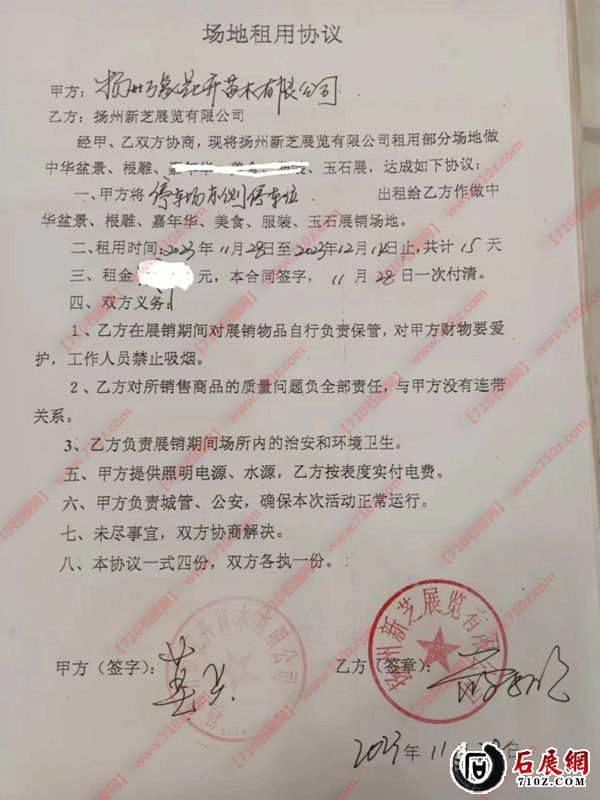 场地租用协议
甲方：扬州万象花卉苗木有限公司
乙方：扬州新芝展览有限公司
经甲、乙双方协商，现将扬州新芝展览有限公司租用部分场地做
中华盆景、根雕、嘉年华、美食、服装、玉石展，达成如下协议：
一、甲方将 停车场东侧停车位 出租给乙方作做中
华盆景、根雕、嘉年华、美食、服装、玉石展销场地。
二、租用时间：2023年11月28日至2023年12月12日止，共计15天
三、租金 元，本合同签字，11月28日一次付清。
四、双方义务：
1、乙方在展销期间对展销物品自行负责保管，对甲方财物要爱
护，工作人员禁止吸烟。
2、乙方对所销售商品的质量问题负全部责任，与甲方没有连带
关系。
3、乙方负责展销期间场所内的治安和环境卫生。
五、甲方提供照明电源、水源，乙方按表度实付电费。
六、甲方负责城管、公安，确保本次活动正常运行。
七、未尽事宜，双方协商解决。
八、本协议一式四份，双方各执一份。
花卉苗木有限公司
扬州新芝展览有限公司
甲方（签字）：
乙方（签章）：
2023年11月 日
石展網
710z.com
【710石展网】www.710z.com